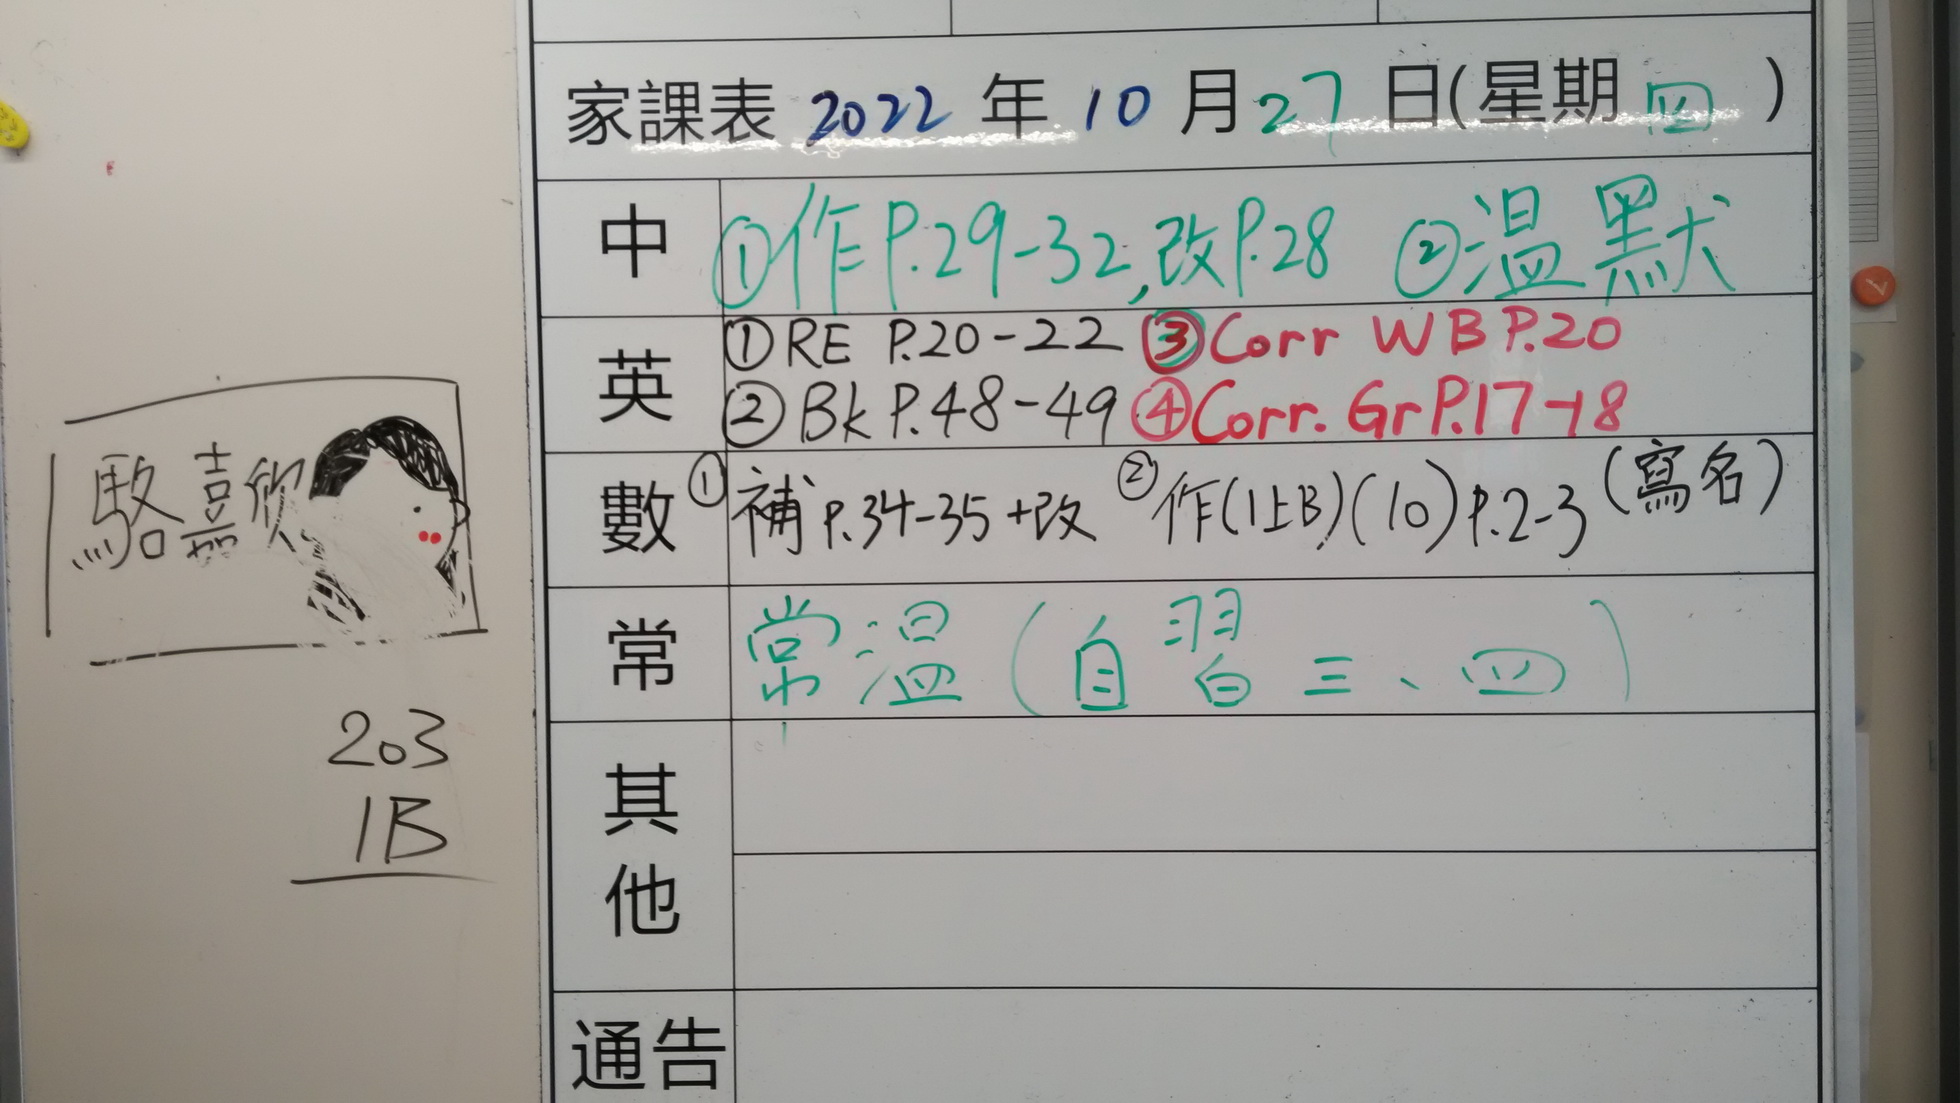 家課表 2022 年 10 月 27 日(星期 四 )
中 ①作P.29-32,改P.28 ②溫默
英 ①RE P.20-22 ③Corr WB P.20
②Bk P.48-49 ④Corr. Gr P.17-18
數 ①補P.34-35+改 ②作(1上B)(10)P.2-3(寫名)
常 常溫(自習三、四)
其他
通告
駱嘉欣
203
1B